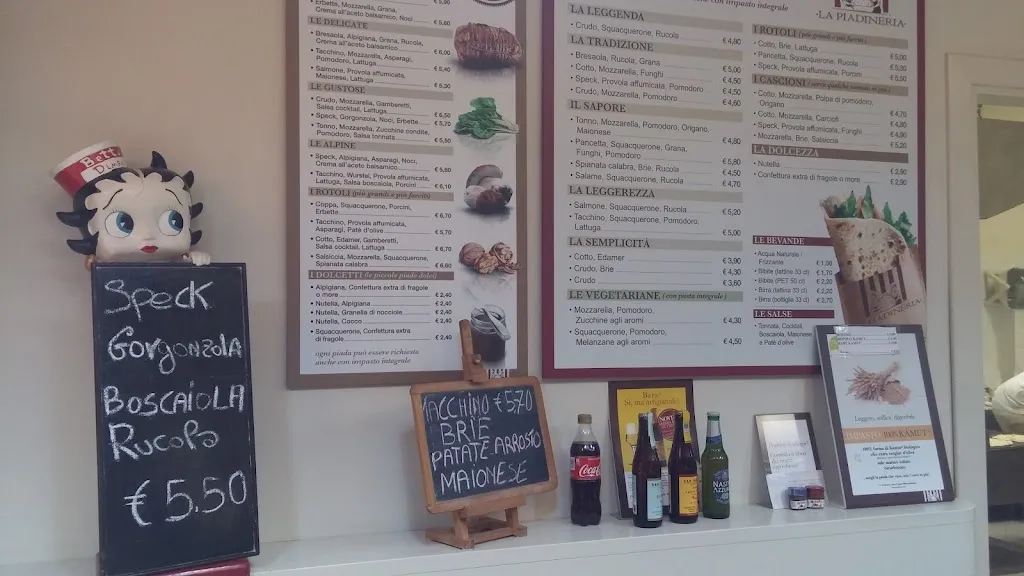 Betty
Speck
Gorgonzola
Boscaiola
Rucola
€ 5.50
Erbette, Mozzarella, Grana,
Crema all'aceto balsamico, Noci € 5,60
LE DELICATE
• Bresaola, Alpigiana, Grana, Rucola,
Crema all'aceto balsamico € 6,00
• Tacchino, Mozzarella, Asparagi,
Pomodoro, Lattuga € 5,40
• Salmone, Provola affumicata,
Maionese, Lattuga € 5,30
LE GUSTOSE
• Crudo, Mozzarella, Gamberetti,
Salsa cocktail, Lattuga € 6,50
• Speck, Gorgonzola, Noci, Erbette € 5,70
• Tonno, Mozzarella, Zucchine condite,
Pomodoro, Salsa tonnata € 5,50
LE ALPINE
• Speck, Alpigiana, Asparagi, Noci,
Crema all'aceto balsamico € 5,80
• Tacchino, Wurstel, Provola affumicata,
Lattuga, Salsa boscaiola, Porcini € 6,10
I ROTOLI (più grandi e più farciti)
• Coppa, Squacquerone, Porcini,
Erbette € 6,70
• Tacchino, Provola affumicata,
Asparagi, Paté d'olive € 5,70
• Cotto, Edamer, Gamberetti,
Salsa cocktail, Lattuga € 6,70
• Salsiccia, Mozzarella, Squacquerone,
Spianata calabra € 6,60
I DOLCETTI (le piccole piade dolci)
• Alpigiana, Confettura extra di fragole
o more € 2,40
• Nutella, Alpigiana € 2,40
• Nutella, Granella di nocciole € 2,40
• Nutella, Cocco € 2,40
• Squacquerone, Confettura extra
di fragole € 2,40
ogni piada può essere richiesta
anche con impasto integrale
anche con impasto integrale
LA PIADINERIA
LA LEGGENDA
• Crudo, Squacquerone, Rucola € 4,80
LA TRADIZIONE
• Bresaola, Rucola, Grana € 5,00
• Cotto, Mozzarella, Funghi € 4,50
• Speck, Provola affumicata, Pomodoro € 4,50
• Crudo, Mozzarella, Pomodoro € 4,60
IL SAPORE
• Tonno, Mozzarella, Pomodoro, Origano,
Maionese € 4,80
• Pancetta, Squacquerone, Grana,
Funghi, Pomodoro € 5,80
• Spianata calabra, Brie, Rucola € 4,50
• Salame, Squacquerone, Rucola € 4,70
LA LEGGEREZZA
• Salmone, Squacquerone, Rucola € 5,20
• Tacchino, Squacquerone, Pomodoro,
Lattuga € 5,00
LA SEMPLICITÀ
• Cotto, Edamer € 3,90
• Crudo, Brie € 4,30
• Crudo € 3,60
LE VEGETARIANE (con pasta integrale)
• Mozzarella, Pomodoro,
Zucchine agli aromi € 4,30
• Squacquerone, Pomodoro,
Melanzane agli aromi € 4,50
I ROTOLI (più grandi e più farciti)
• Cotto, Brie, Lattuga € 5,00
• Pancetta, Squacquerone, Rucola € 5,30
• Speck, Provola affumicata, Porcini
I CASCIONI
• Cotto, Mozzarella, Polpa di pomodoro,
Origano € 4,70
• Cotto, Mozzarella, Carciofi € 4,80
• Speck, Provola affumicata, Funghi € 4,90
• Mozzarella, Brie, Salsiccia € 5,20
LA DOLCEZZA
• Nutella € 2,90
• Confettura extra di fragole o more € 2,90
LE BEVANDE
• Acqua Naturale /
Frizzante € 1,00
• Bibite (lattine 33 cl) € 1,70
• Bibite (PET 50 cl) € 2,20
• Birra (lattina 33 cl) € 2,20
• Birra (bottiglia 33 cl) € 2,70
LE SALSE
• Tonnata, Cocktail,
Boscaiola, Maionese
e Paté d'olive
LA PIADINERIA
TACCHINO €5,70
BRIE
PATATE ARROSTO
MAIONESE
Coca
Birre?
Sì, ma artigianali!
NASTRO
AZZURRO
Leggero, soffice, digeribile
IMPASTO KAMUT